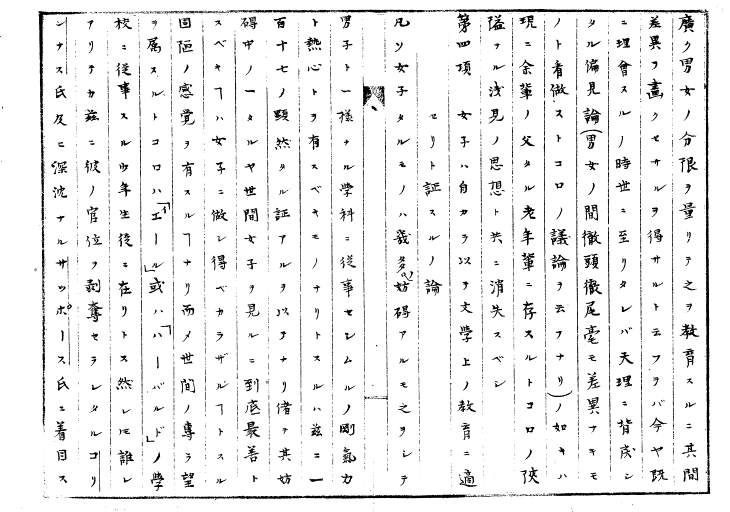 廣ク男女ノ分限ヲ量リテ之ヲ教育スルニ其間
差異ヲ畫クセサルヲ得サルト云フヲバ今ヤ既
ニ理會スルノ時世ニ至リタレバ天理ニ背戻シ
タル偏見論(男女ノ間徹頭徹尾毫モ差異ナキモ
ノト看做ストコロノ議論ヲ云フナリ)ノ如キハ
現ニ余輩ノ父タル老年輩ニ存スルトコロノ陜
隘ナル浅見ノ思想ト共ニ消失スベシ
第四項 女子ハ自カラ以テ文學上ノ教育ニ適
セリト証スルノ論
凡ソ女子タルモノハ幾多ノ妨碍アルモ之ヲシテ
男子ト一樣ナル学科ニ從事セシムルノ剛氣力
ト熱心トヲ有スベキモノナリトスルハ茲ニ一
百十七ノ顕然タル証アルヲ以テナリ偖テ其妨
碍中ノ一タルヤ世間女子ヲ見ルニ到底最善ト
スベキヿハ女子ニ做シ得ベカラザルヿトスル
固陋ノ感覚ヲ有スルヿナリ而メ世間ノ専ラ望
ヲ属スルトコロハ「エール」或ハ「ハーバルド」ノ學
校ニ從事スル少年生徒ニ在リトス然レモ誰レ
アリテカ茲ニ彼ノ官位ヲ剥奪セラレタルコリ
ンナス氏及ヒ深沈ナルサッポース氏ニ着目ス